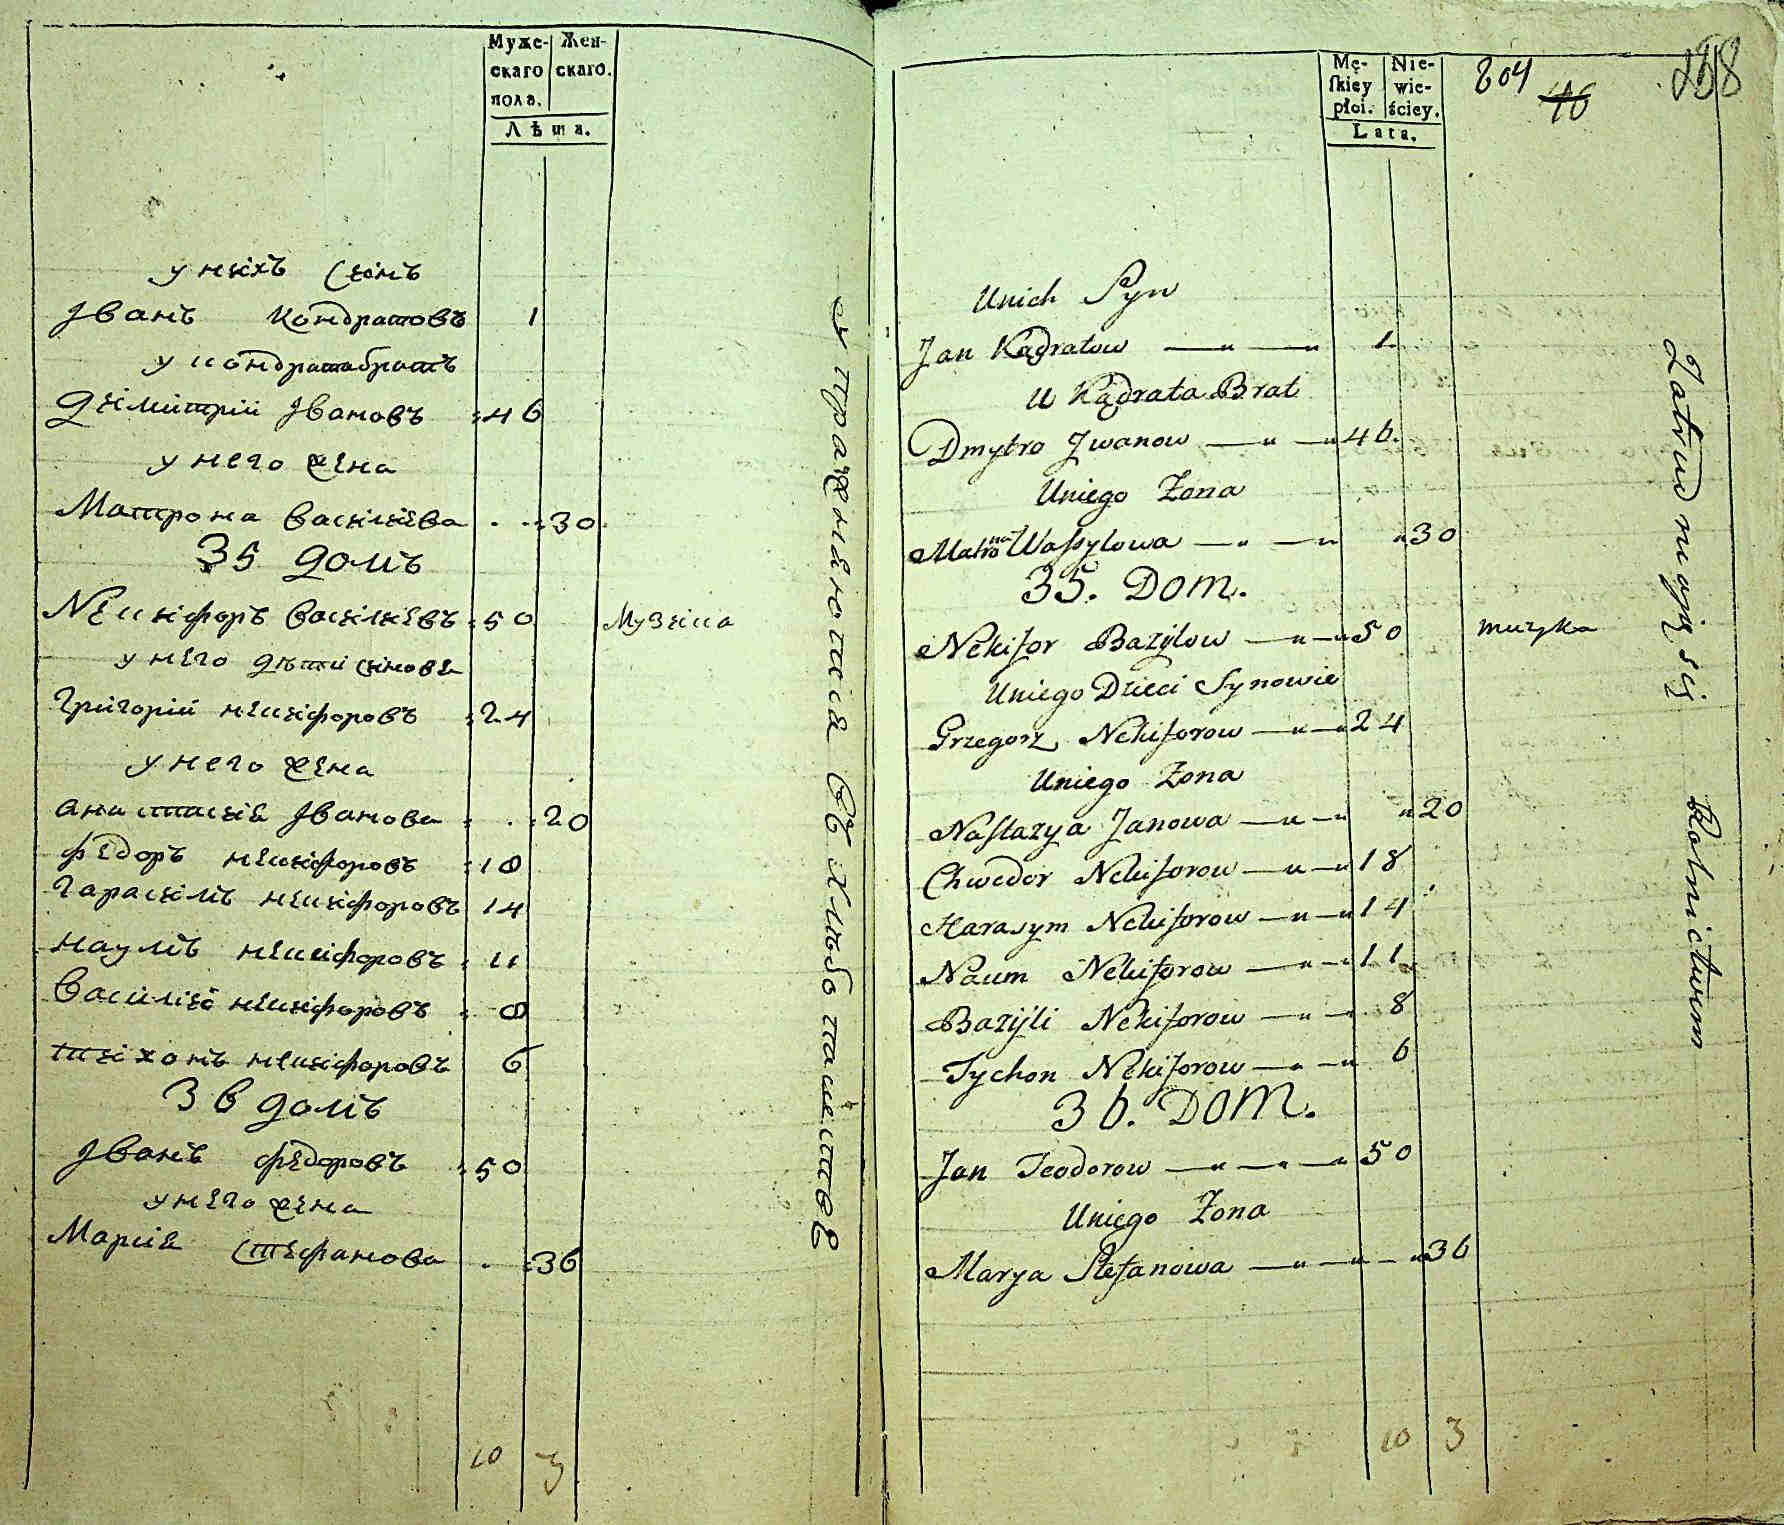 Муже-
скаго
пола.
Жен-
скаго.
Лѣта.
у нихъ Сынъ
Іванъ Кондратовъ 1
у кондрата братъ
Димитрій Івановъ 46
у него жена
Матрона Василиева 30
35 домъ
Никифоръ Василиевъ 50 Музика
у него дѣти синове
Григорій никифоровъ 24
у него жена
анастасия Іванова 20
федоръ никифоровъ 18
Гарасимъ никифоровъ 14
наумъ никифоровъ 11
Василий никифоровъ 8
тихонъ никифоровъ 6
36 домъ
Іванъ федоровъ 50
у него жена
Мария Стефанова 36
10 3
упражняются въ хлѣбопашестве
Mę-
ſkiey
płci.
Nie-
wie-
ściey.
Lata.
804
46
258
Unich Syn
Jan Kądratow 1
U Kądrata Brat
Dmytro Jwanow 46.
Uniego Zona
Matrona Waſylowa 30
35. Dom.
Nekifor Bazylow 50 muzyka
Uniego Dzieci Synowie
Grzegorz Nekiforow 24
Uniego Zona
Naſtazya Janowa 20
Chwedor Nekiforow 18
Harasym Nekiforow 14
Naum Nekiforow 11
Bazyli Nekiforow 8
Tychon Nekiforow 6
36. DOM.
Jan Teodorow 50
Uniego Zona
Marya Stefanowa 36
10 3
Zatrudniają się Rolnictwem